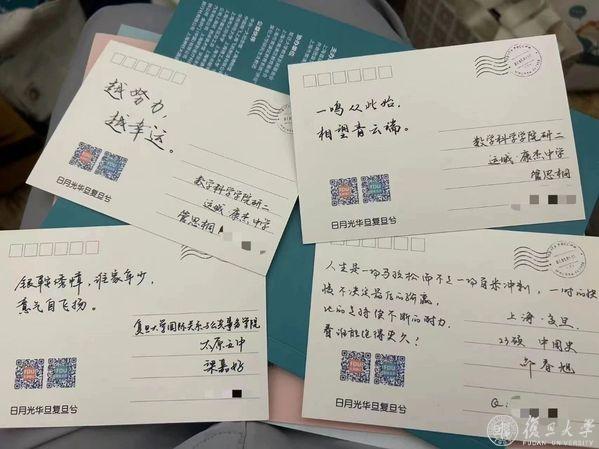 越努力,
越幸运。
数学科学学院研二
运城 康杰中学
管思桐
日月光华旦复旦兮
一鸣从此始,
相望青云端。
数学科学学院研二
运城 康杰中学
管思桐
日月光华旦复旦兮
银鞍绣幛,谁家年少,
意气自飞扬。
复旦大学国际关系与公共事务学院
太原五中
梁嘉好
日月光华旦复旦兮
人生是一场马拉松而不是一场百米冲刺,一时的快
慢不决定最后的输赢,
比的是持续不断的耐力,
看谁能跑得更久!
上海·复旦
23硕 中国史
春旭
Q:
日月光华旦复旦兮
復旦大學
FUDAN UNIVERSITY